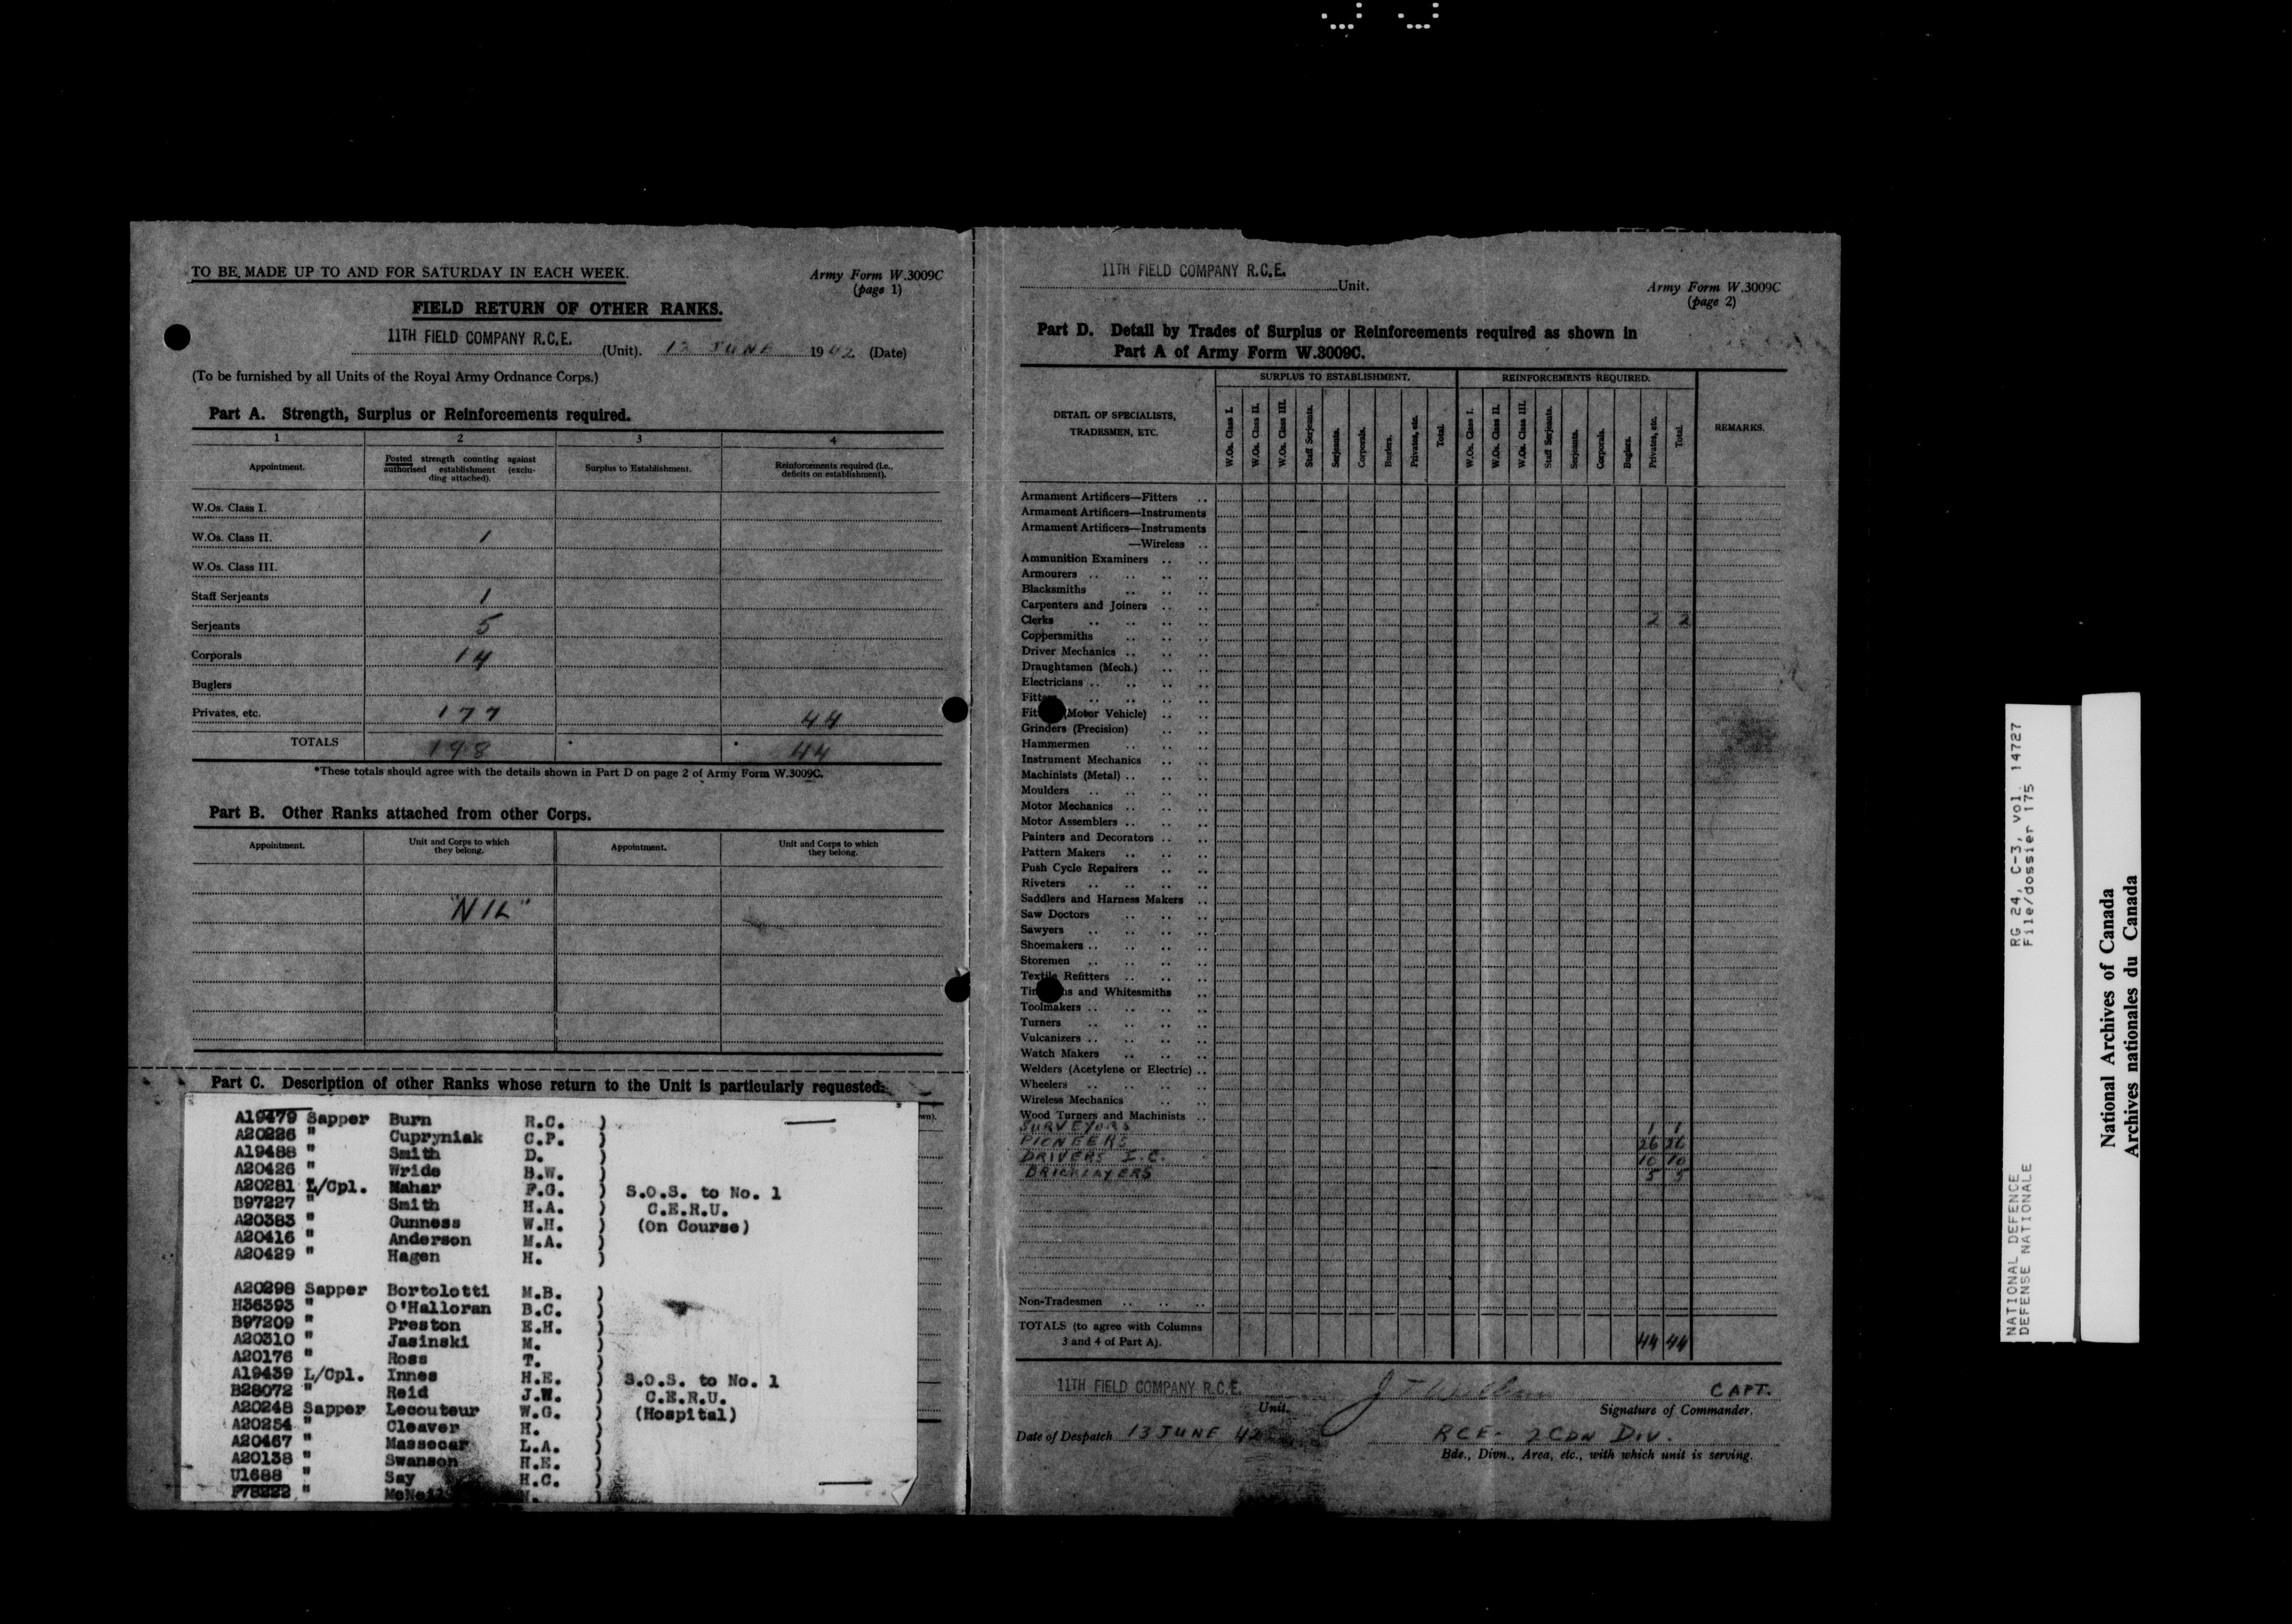 TO BE MADE UP TO AND FOR SATURDAY IN EACH WEEK.
Army Form W.3009C
(page 1)
FIELD RETURN OF OTHER RANKS.
11TH FIELD COMPANY R.C.E. (Unit). JUNE 1942 (Date)
(To be furnished by all Units of the Royal Army Ordnance Corps.)
Part A. Strength, Surplus or Reinforcements required.
1 2 3 4
Appointment. Posted strength counting against authorised establishment (excluding attached). Surplus to Establishment. Reinforcements required (i.e., deficits on establishment).
W.Os. Class I.
W.Os. Class II. 1
W.Os. Class III.
Staff Serjeants 1
Serjeants 5
Corporals 14
Buglers
Privates, etc. 177 44
TOTALS 198 44
*These totals should agree with the details shown in Part D on page 2 of Army Form W.3009C.
Part B. Other Ranks attached from other Corps.
Appointment. Unit and Corps to which they belong. Appointment. Unit and Corps to which they belong.
"NIL"
Part C. Description of other Ranks whose return to the Unit is particularly requested.
A19479 Sapper Burn R.C. )
A20226 " Cupryniak C.P. )
A19488 " Smith D. )
A20426 " Wride B.W. )
A20281 L/Cpl. Mahar F.G. ) S.O.S. to No. 1
B97227 " Smith H.A. ) C.E.R.U.
A20383 " Gunness W.H. ) (On Course)
A20416 " Anderson M.A. )
A20429 " Hagen H. )
A20298 Sapper Bortolotti M.B. )
H36393 " O'Halloran B.C. )
B97209 " Preston E.H. )
A20310 " Jasinski M. )
A20176 " Ross T. )
A19439 L/Cpl. Innes H.E. ) S.O.S. to No. 1
B28072 " Reid J.W. ) C.E.R.U.
A20248 Sapper Lecouteur W.G. ) (Hospital)
A20254 " Cleaver H. )
A20467 " Massecar L.A. )
A20138 " Swanson H.E. )
U1688 " Say H.C. )
F78222 "
11TH FIELD COMPANY R.C.E. Unit.
Army Form W.3009C
(page 2)
Part D. Detail by Trades of Surplus or Reinforcements required as shown in
Part A of Army Form W.3009C.
DETAIL OF SPECIALISTS, TRADESMEN, ETC. SURPLUS TO ESTABLISHMENT. REINFORCEMENTS REQUIRED. REMARKS.
W.Os. Class I. W.Os. Class II. W.Os. Class III. Staff Serjeants. Serjeants. Corporals. Buglers. Privates, etc. Total. W.Os. Class I. W.Os. Class II. W.Os. Class III. Staff Serjeants. Serjeants. Corporals. Buglers. Privates, etc. Total.
Armament Artificers—Fitters ..
Armament Artificers—Instruments
Armament Artificers—Instruments
—Wireless ..
Ammunition Examiners .. ..
Armourers .. .. .. ..
Blacksmiths .. .. ..
Carpenters and Joiners .. ..
Clerks .. .. .. .. 2 2
Coppersmiths .. .. ..
Driver Mechanics .. .. ..
Draughtsmen (Mech.) .. ..
Electricians .. .. .. ..
Fitters .. .. ..
(Motor Vehicle) .. ..
Grinders (Precision) .. ..
Hammermen .. .. ..
Instrument Mechanics .. ..
Machinists (Metal) .. .. ..
Moulders .. .. .. ..
Motor Mechanics .. .. ..
Motor Assemblers .. .. ..
Painters and Decorators .. ..
Pattern Makers .. .. ..
Push Cycle Repairers .. ..
Riveters .. .. .. ..
Saddlers and Harness Makers ..
Saw Doctors .. .. ..
Sawyers .. .. .. ..
Shoemakers .. .. .. ..
Storemen .. .. .. ..
Textile Refitters .. .. ..
and Whitesmiths ..
Toolmakers .. .. .. ..
Turners .. .. .. ..
Vulcanizers .. .. .. ..
Watch Makers .. .. ..
Welders (Acetylene or Electric) ..
Wheelers .. .. .. ..
Wireless Mechanics .. ..
Wood Turners and Machinists ..
SURVEYORS 1 1
PIONEERS 26 26
DRIVERS I.C. 10 10
BRICKLAYERS 5 5
Non-Tradesmen .. .. ..
TOTALS (to agree with Columns
3 and 4 of Part A). 44 44
11TH FIELD COMPANY R.C.E. Unit.
CAPT.
Signature of Commander.
Date of Despatch 13 JUNE 42
RCE- 2 CDN DIV.
Bde., Divn., Area, etc., with which unit is serving.
NATIONAL DEFENCE RG 24, C-3, vol. 14727
DEFENSE NATIONALE File/dossier 175
National Archives of Canada
Archives nationales du Canada